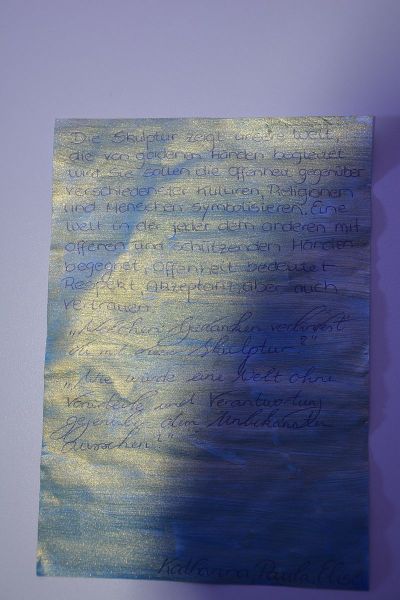 Die Skulptur zeigt unsere Welt,
die von goldenen Händen begleitet
wird. Sie sollen die Offenheit gegenüber
verschiedenster Kulturen, Religionen
und Menschen symbolisieren. Eine
Welt in der jeder dem anderen mit
offenen und schützenden Händen
begegnet. Offenheit bedeutet
Respekt, Akzeptanz, aber auch
Vertrauen.
„Welchen Gedanken verbindest
du mit dieser Skulptur?"
„Wie würde eine Welt ohne
Vorurteile und Verantwortung
gegenüber dem Unbekannten
aussehen?"
Katharina, Paula, Elise